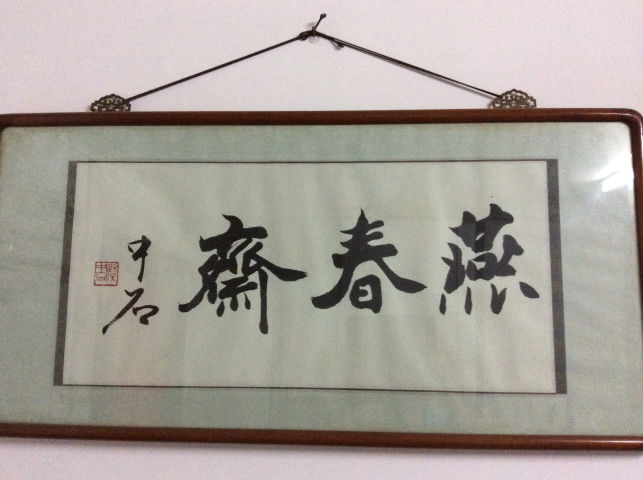 燕春齋
中石